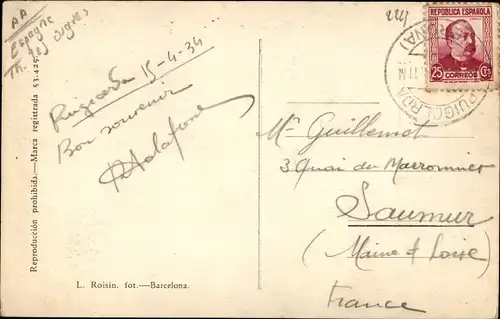 AA
Espagne
Puigcerda 15-4-34
Bon souvenir
Mr Guillemot
3 Quai du Marronnier
Saumur
(Maine & Loire)
France
REPÚBLICA ESPAÑOLA
25 CTS
CORREOS
PUIGCERDA
Reproducción prohibida.—Marca registrada 53.425
L. Roisin. fot.—Barcelona.